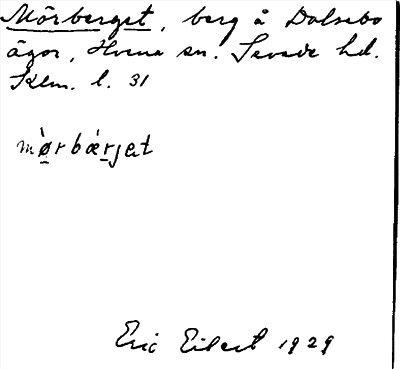 Mörberget, berg å Dalsebo
ägor, Hvena sn. Sevede hd.
Klm. l. 31
mø̀rbæ̀rjat
Eric Eilert 1929